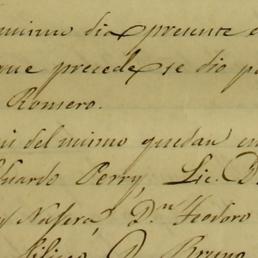 mismo dia presente
que precede se dio
Romero.
del mismo quedan en
Eduardo Perry, Lic. D.
Najera, D.ⁿ Teodoro
D. Bruno